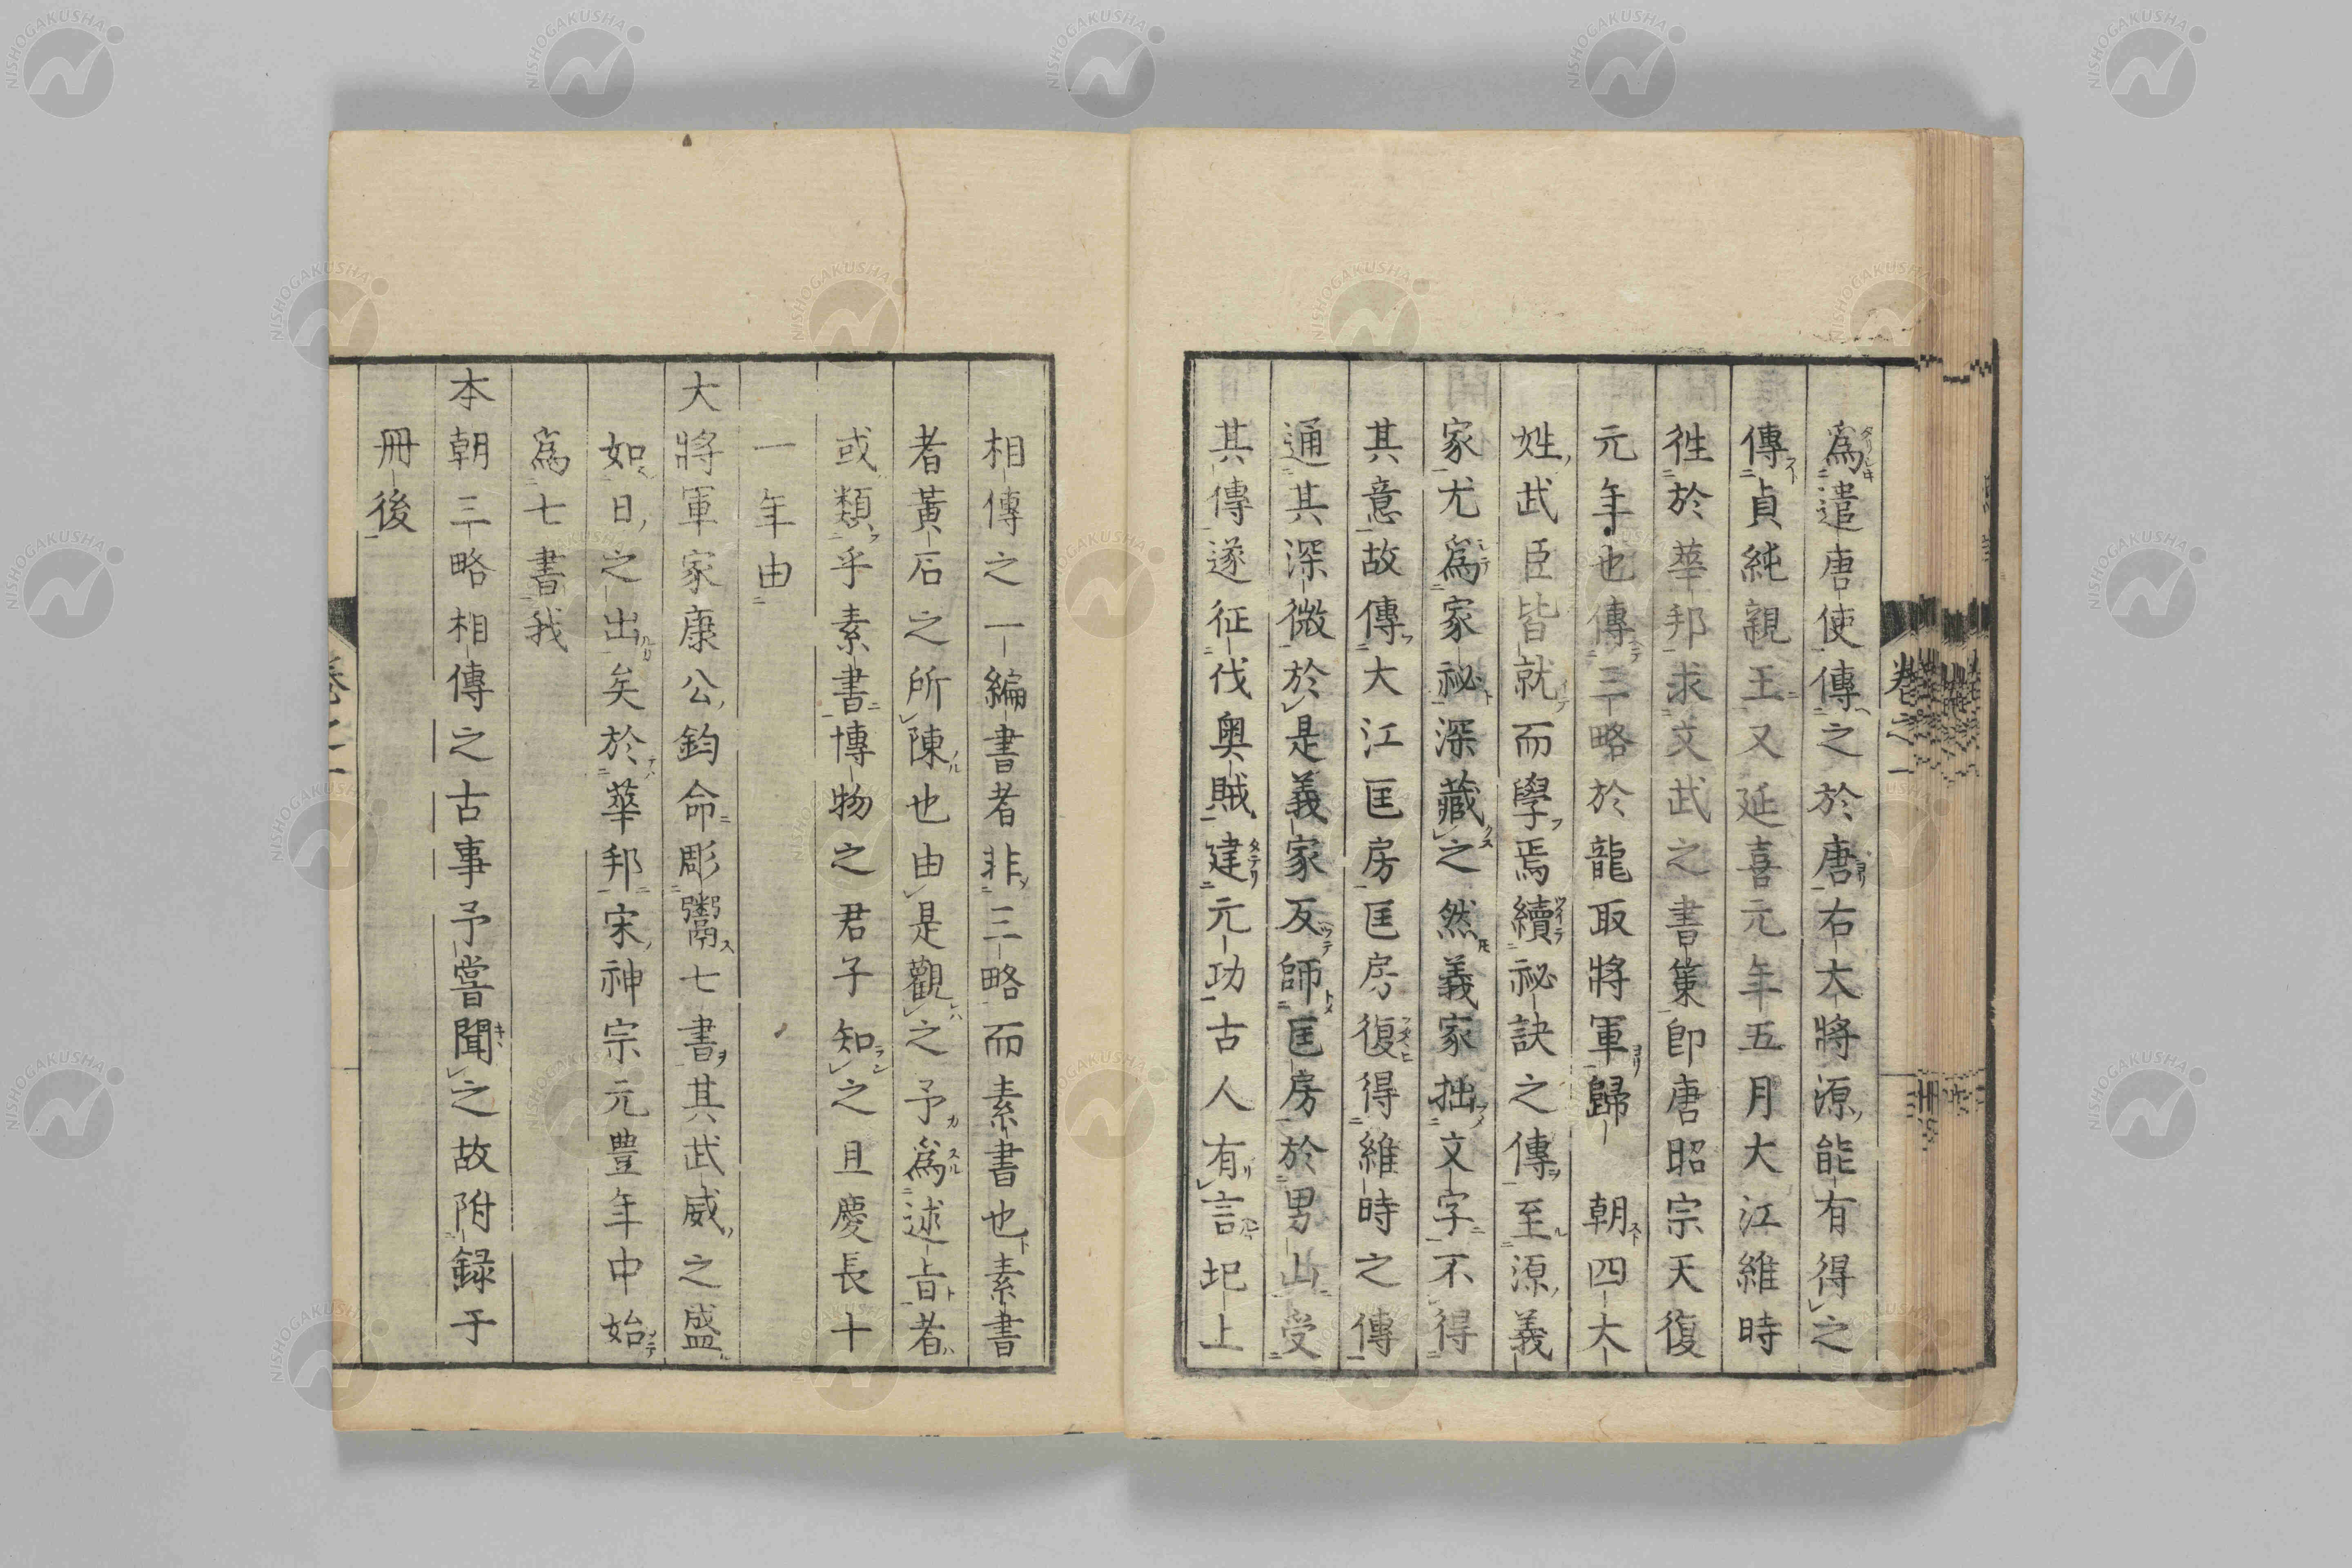 爲遣唐使傳之於唐右大將源能有得之
傳貞純親王又延喜元年五月大江維時
徃於華邦求文武之書策即唐昭宗天復
元年也傳三略於龍取將軍歸　朝四大
姓武臣皆就而學焉續祕訣之傳至源義
家尤爲家祕深藏之然義家拙文字不得
其意故傳大江匡房匡房復得維時之傳
通其深微於是義家反師匡房於男山受
其傳遂征伐奥賊建元功古人有言圯上
相傳之一編書者非三略而素書也素書
者黄石之所陳也由是觀之予爲述旨者
或類乎素書博物之君子知之且慶長十
一年由
大將軍家康公鈞命彫鬻七書其武威之盛
如日之出矣於華邦宋神宗元豊年中始
爲七書我
本朝三略相傳之古事予嘗聞之故附録于
冊後
卷之一
NISHOGAKUSHA